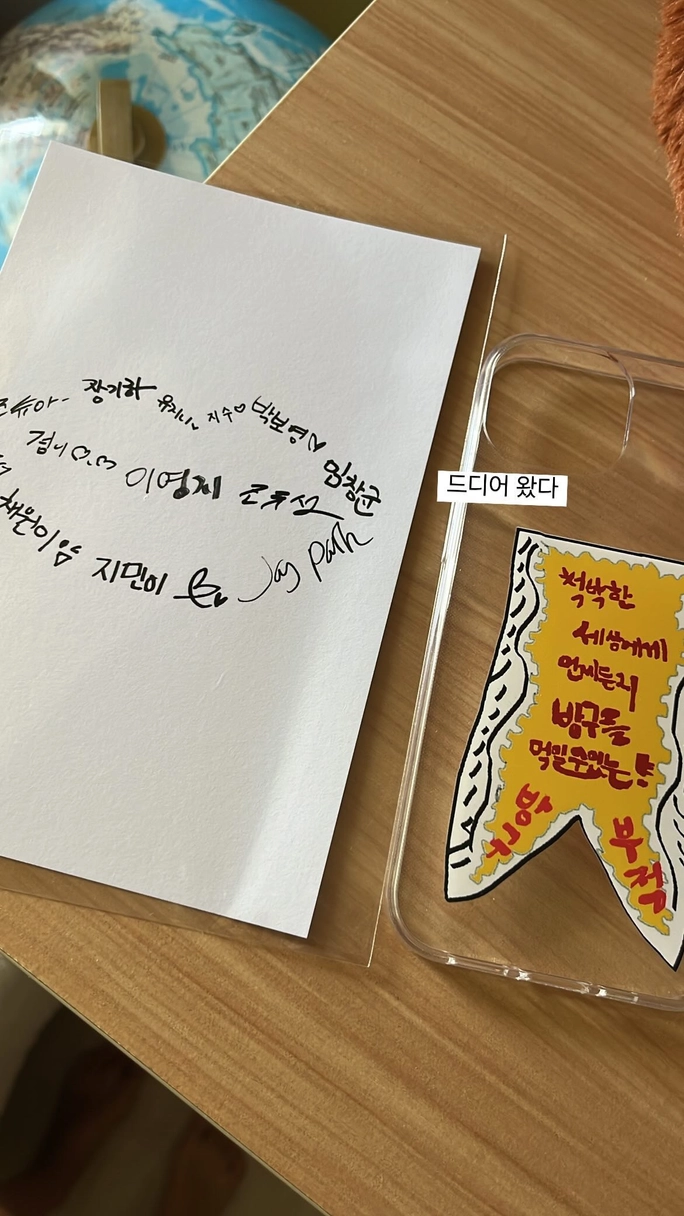 장기하
유지니
지수♡
박보영♡
임창균
겸이♡.♡
이영지
조유선
채원이
지민이
Jay Park
드디어 왔다
척박한
세상에게
언제든지
방구를
먹일 수 있는
방구
부적